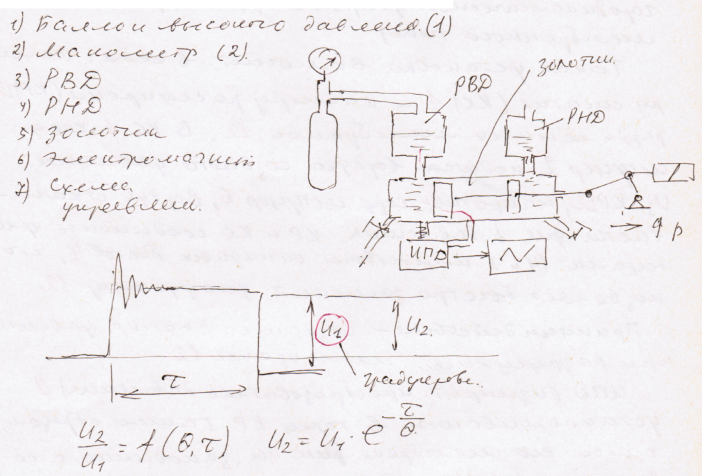 1) Баллон высокого давления (1)
2) Манометр (2).
3) РВД
4) РНД
5) Золотник
6) Электромагнит
7) Схема
управления.
РВД
золотник
РНД
ИПД
др
U₁
U₂.
τ
градуировк.
U₂/U₁ = f(θ,τ) U₂ = U₁ · e^(-τ/θ)